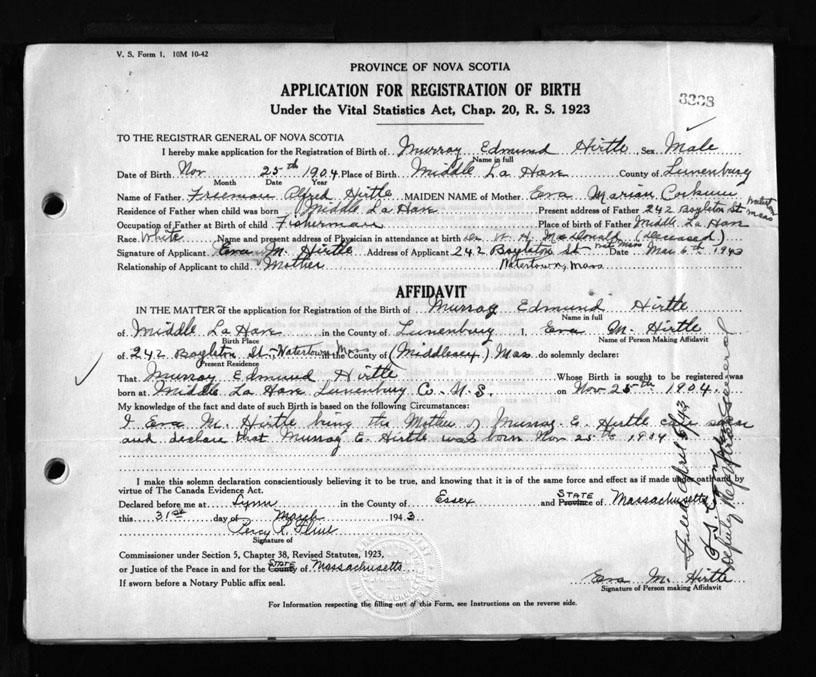 V. S. Form 1. 10M 10-42
PROVINCE OF NOVA SCOTIA
APPLICATION FOR REGISTRATION OF BIRTH
Under the Vital Statistics Act, Chap. 20, R. S. 1923
TO THE REGISTRAR GENERAL OF NOVA SCOTIA
I hereby make application for the Registration of Birth of Murray Edmund Hirtle Sex Male
Name in full
Date of Birth Nov 25th 1904 Place of Birth Middle La Have County of Lunenburg
Month Date Year
Name of Father Freeman Alfred Hirtle MAIDEN NAME of Mother Eva Marian
Residence of Father when child was born Middle La Have Present address of Father 242 Boylston St Watertown Mass
Occupation of Father at Birth of child Fisherman Place of birth of Father Middle La Have
Race White Name and present address of Physician in attendance at birth Dr W. H. MacDonald (Deceased)
Signature of Applicant Eva M. Hirtle Address of Applicant 242 Boylston St Date Mar 6th 1943
Relationship of Applicant to child Mother Watertown, Mass
AFFIDAVIT
IN THE MATTER of the application for Registration of the Birth of Murray Edmund Hirtle
Name in full
of Middle La Have in the County of Lunenburg I, Eva M. Hirtle
Birth Place Name of Person Making Affidavit
of 242 Boylston St. Watertown Mass in the County of (Middlesex) Mass do solemnly declare:
(Present Residence
That Murray Edmund Hirtle Whose Birth is sought to be registered was
born at Middle La Have Lunenburg Co. N.S. on Nov 25th 1904.
My knowledge of the fact and date of such Birth is based on the following Circumstances:
I Eva M. Hirtle being the Mother of Murray E. Hirtle
and declare that Murray E. Hirtle was born Nov 25th 1904
I make this solemn declaration conscientiously believing it to be true, and knowing that it is of the same force and effect as if made under oath and by
virtue of The Canada Evidence Act.
Declared before me at Lynn in the County of Essex and STATE Province of Massachusetts
this 31st day of March 1943
Percy
Signature of
Commissioner under Section 5, Chapter 38, Revised Statutes, 1923,
or Justice of the Peace in and for the STATE County of Massachusetts
If sworn before a Notary Public affix seal.
Eva M. Hirtle
Signature of Person making Affidavit
For Information respecting the filling out of this Form, see Instructions on the reverse side.
Deputy Registrar General